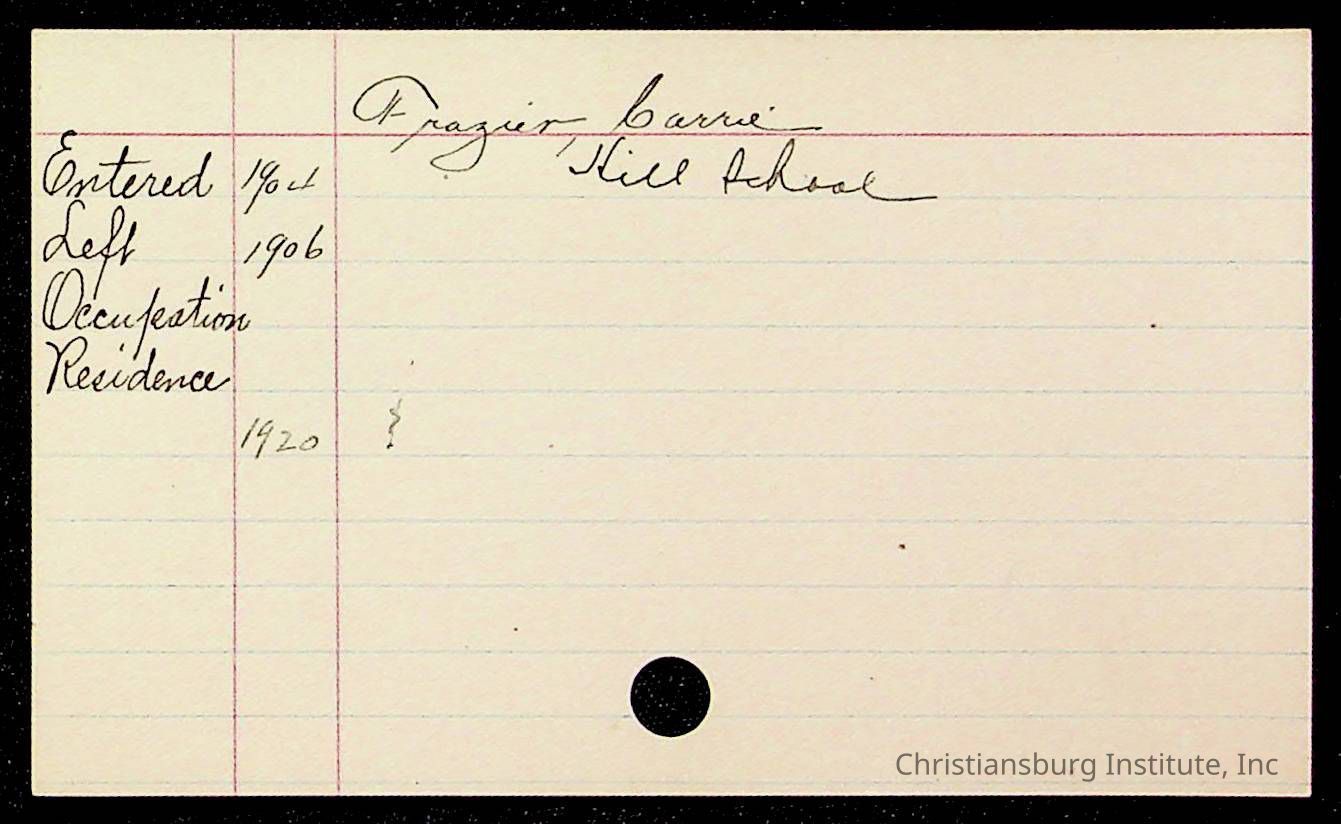 Frazier, Carrie
Entered 1904 Hill School
Left 1906
Occupation
Residence
1920 }
Christiansburg Institute, Inc